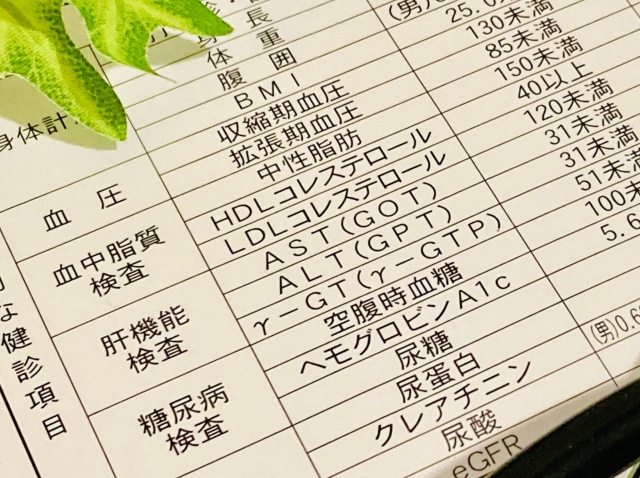 身長
体重
腹囲
BMI (男)
収縮期血圧 130未満
拡張期血圧 85未満
中性脂肪 150未満
HDLコレステロール 40以上
LDLコレステロール 120未満
AST(GOT) 31未満
ALT(GPT) 31未満
γ-GT(γ-GTP) 51未満
空腹時血糖 100未
ヘモグロビンA1c 5.6
尿糖
尿蛋白
クレアチニン (男)0.6
尿酸
eGFR
身体計
血圧
血中脂質
検査
肝機能
検査
糖尿病
検査
な健診項目